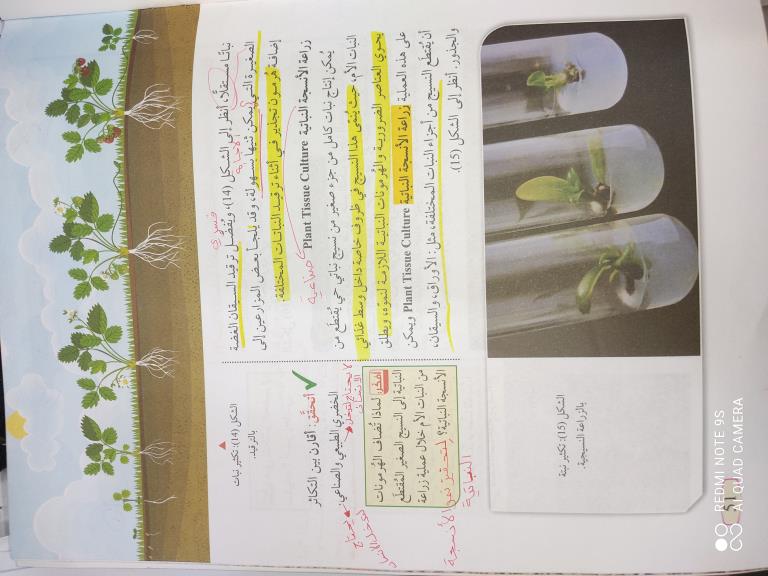 نباتًا مستقلًّا، أنظر إلى الشكل (14)، ويُفضَّل ترقيد السيقان الغضة
الصغيرة التي يمكن ثنيها بسهولة، وقد يلجأ بعض المزارعين إلى
إضافة هرمون تجذير في أثناء ترقيد النباتات المختلفة.
زراعة الأنسجة النباتية Plant Tissue Culture
صناعية
يُمكن إنتاج نبات كامل من جزء صغير من نسيج نباتي حي يُقتطَع من
النبات الأم، حيث يُنمّى هذا النسيج في ظروف خاصة داخل وسط غذائي
يحوي العناصر الضرورية والهرمونات النباتية اللازمة لنموّه، ويطلق
على هذه العملية زراعة الأنسجة النباتية Plant Tissue Culture ويمكن
أن يُقتطع النسيج من أجزاء النبات المختلفة، مثل: الأوراق، والسيقان،
والجذور. أنظر إلى الشكل (15).
الشكل (14): تكثير نبات
بالترقيد.
✓ أتحقّق: أقارن بين التكاثر
الخضري الطبيعي والصناعي.
لا يحتاج لتدخل
الانسان
يحتاج
لتدخل الانسان
أفكر: لماذا تُضاف الهرمونات
النباتية إلى النسيج الصغير المُقتطَع
من النبات الأم خلال عملية زراعة
الأنسجة النباتية؟
لتحفيز نمو الأنسجة
النباتية
الشكل (15): تكثير نبتة
بالزراعة النسيجية.
51
REDMI NOTE 9S
AI QUAD CAMERA